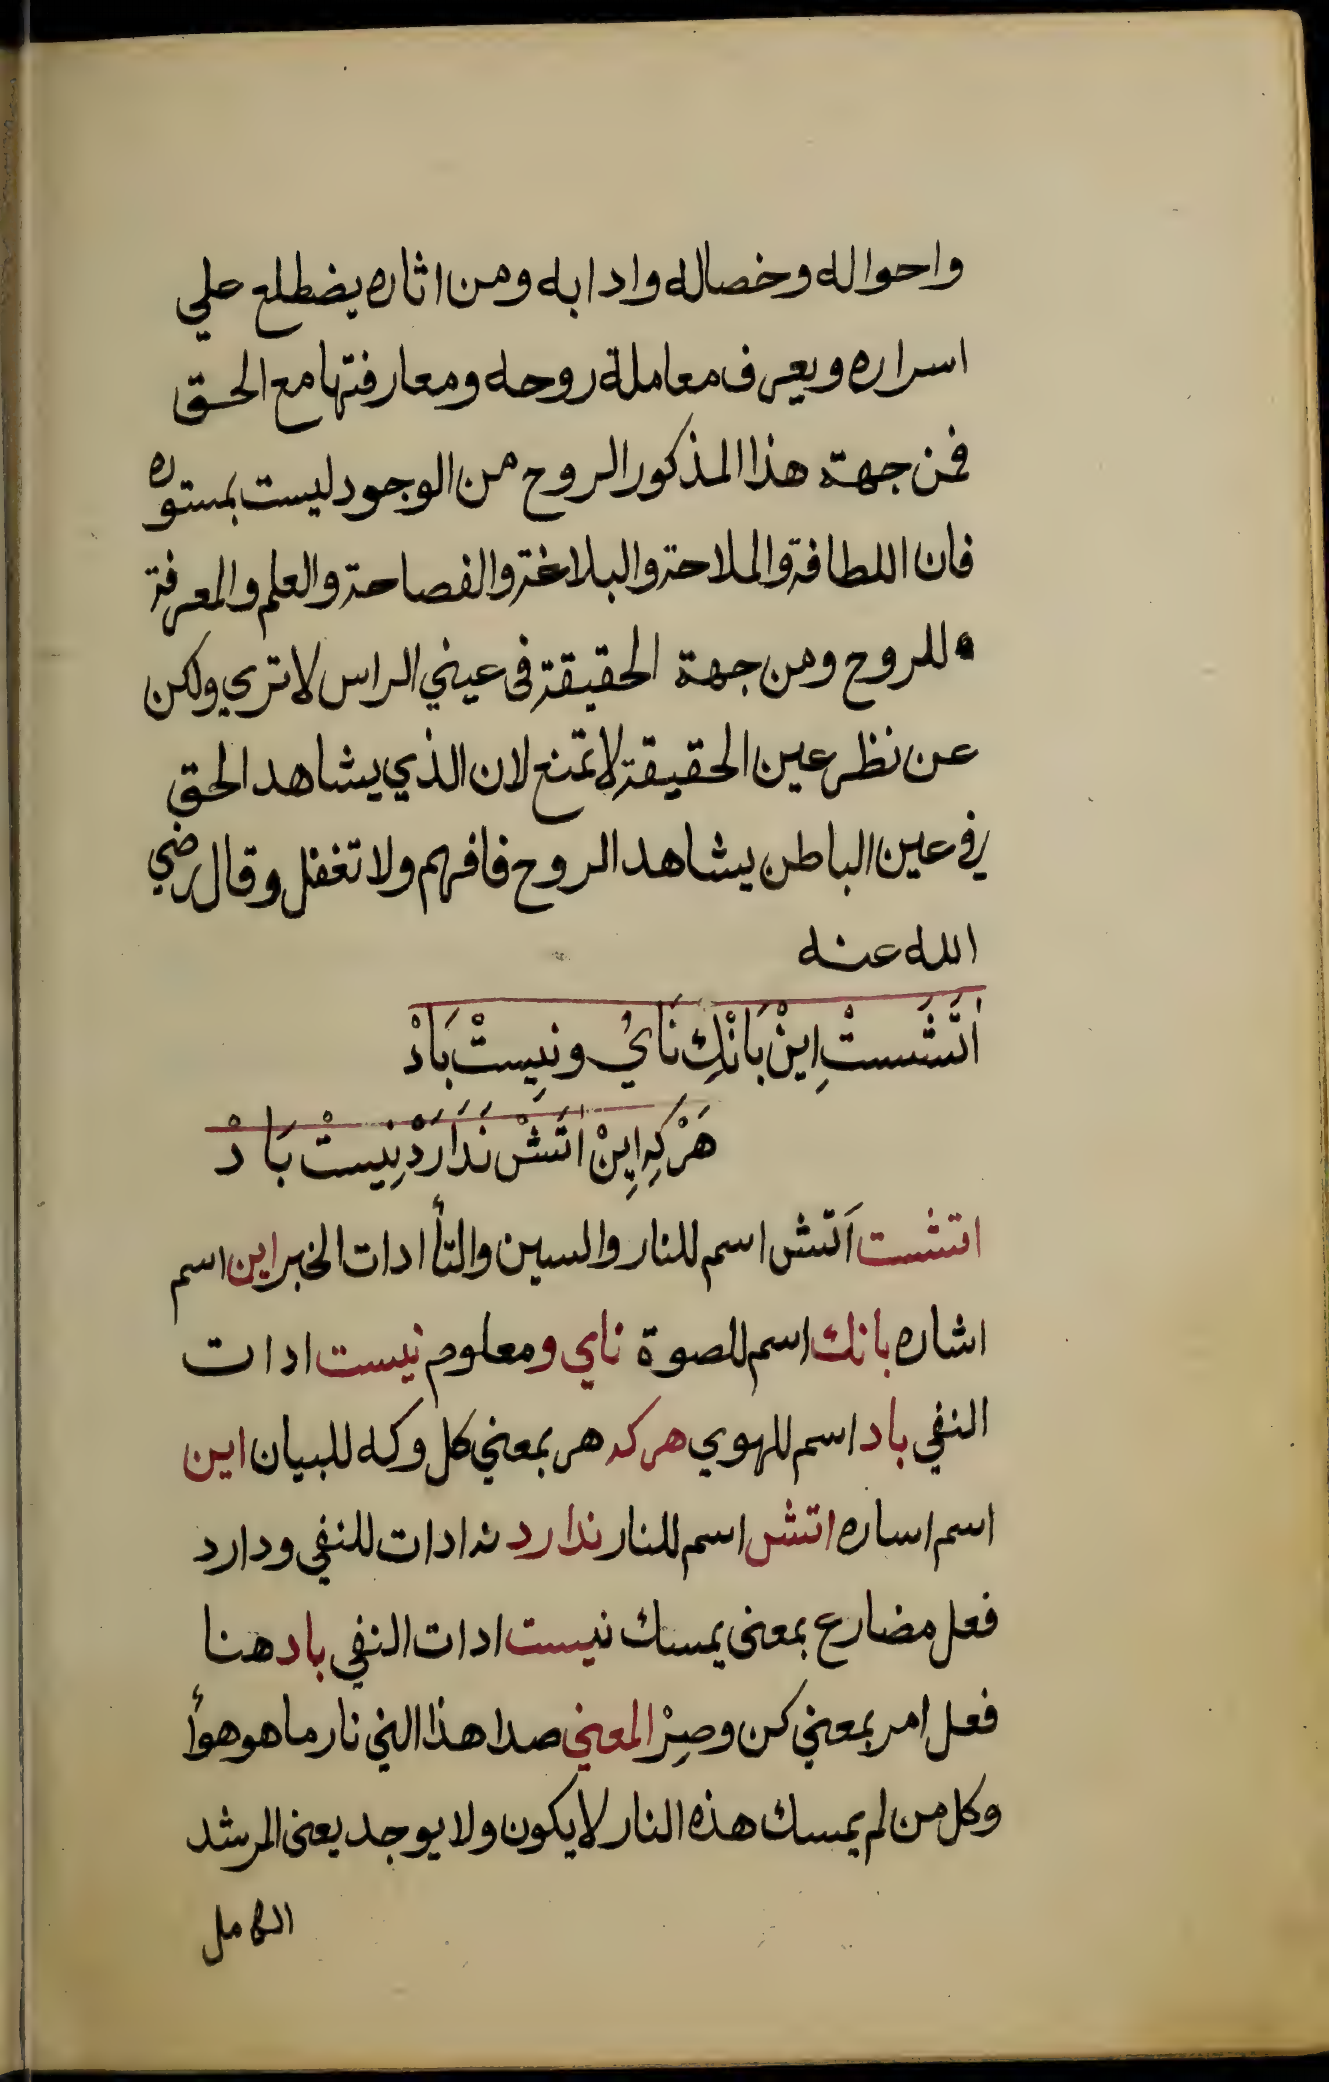 واحواله وخصاله وادابه ومن اثاره يضطلع علي
اسراره ويعرف معاملة روحه ومعارفتها مع الحق
فمن جهة هذا المذكور الروح من الوجود ليست بمستوره
فان اللطافة والملاحة والبلاغة والفصاحة والعلم والمعرفة
للروح ومن جهة الحقيقة في عيني الراس لا تري ولكن
عن نظر عين الحقيقة لا تمنع لان الذي يشاهد الحق
في عين الباطن يشاهد الروح فافهم ولا تغفل وقال رضي
الله عنه
اَتَشَسْتِ اِينْ بَانْكِ نَايُ ونِيسْتْ بَادْ
هَرْكِه اِينْ اتَشْ نَدَارَدْ نِيسْتْ بَادْ
اتشست اَتش اسم للنار والسين والتأ ادات الخبر اين اسم
اشاره بانك اسم للصوة ناي ومعلوم نيست ادات
النفي باد اسم للهوي هركه هر بمعني كل وكه للبيان اين
اسم اساره اتش اسم للنار ندارد نه ادات للنفي ودارد
فعل مضارع بمعنى يمسك نيست ادات النفي باد هنا
فعل امر بمعني كن وصِرْ المعني صدا هذا الني نار ما هو هوأ
وكل من لم يمسك هذه النار لا يكون ولا يوجد يعنى المرشد
الكامل